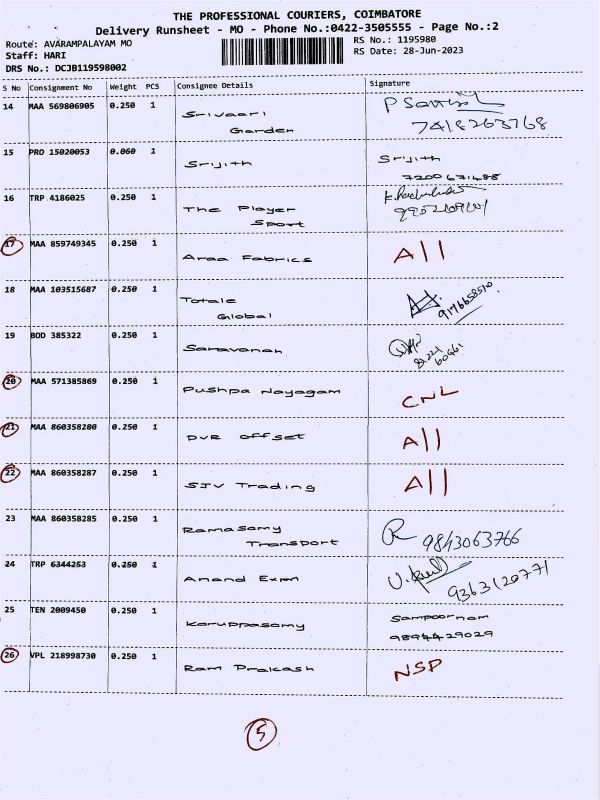 THE PROFESSIONAL COURIERS, COIMBATORE
Delivery Runsheet - MO - Phone No.:0422-3505555 - Page No.:2
Route: AVARAMPALAYAM MO
RS No.: 1195980
Staff: HARI
RS Date: 28-Jun-2023
DRS No.: DCJB119598002
S No Consignment No Weight PCS Consignee Details Signature
14 MAA 569806905 0.250 1 Srivaari
Garden
7418263768
15 PRO 15020053 0.060 1 Srijith Srijith
7200671488
16 TRP 4186025 0.250 1 The Player
Sport
17 MAA 859749345 0.250 1 Araa Fabrics All
18 MAA 103515687 0.250 1 Totale
Global
9176658510
19 BOD 385322 0.250 1 Saravanan
20 MAA 571385869 0.250 1 Pushpa Nayagam CNL
21 MAA 860358280 0.250 1 DVR offset All
22 MAA 860358287 0.250 1 SJV Trading All
23 MAA 860358285 0.250 1 Ramasamy
Transport
R 9843063766
24 TRP 6344253 0.250 1 Anand
9363120771
25 TEN 2009450 0.250 1 Karuppasamy Sampoornam
9894429029
26 VPL 218998730 0.250 1 Ram Prakash NSP
5